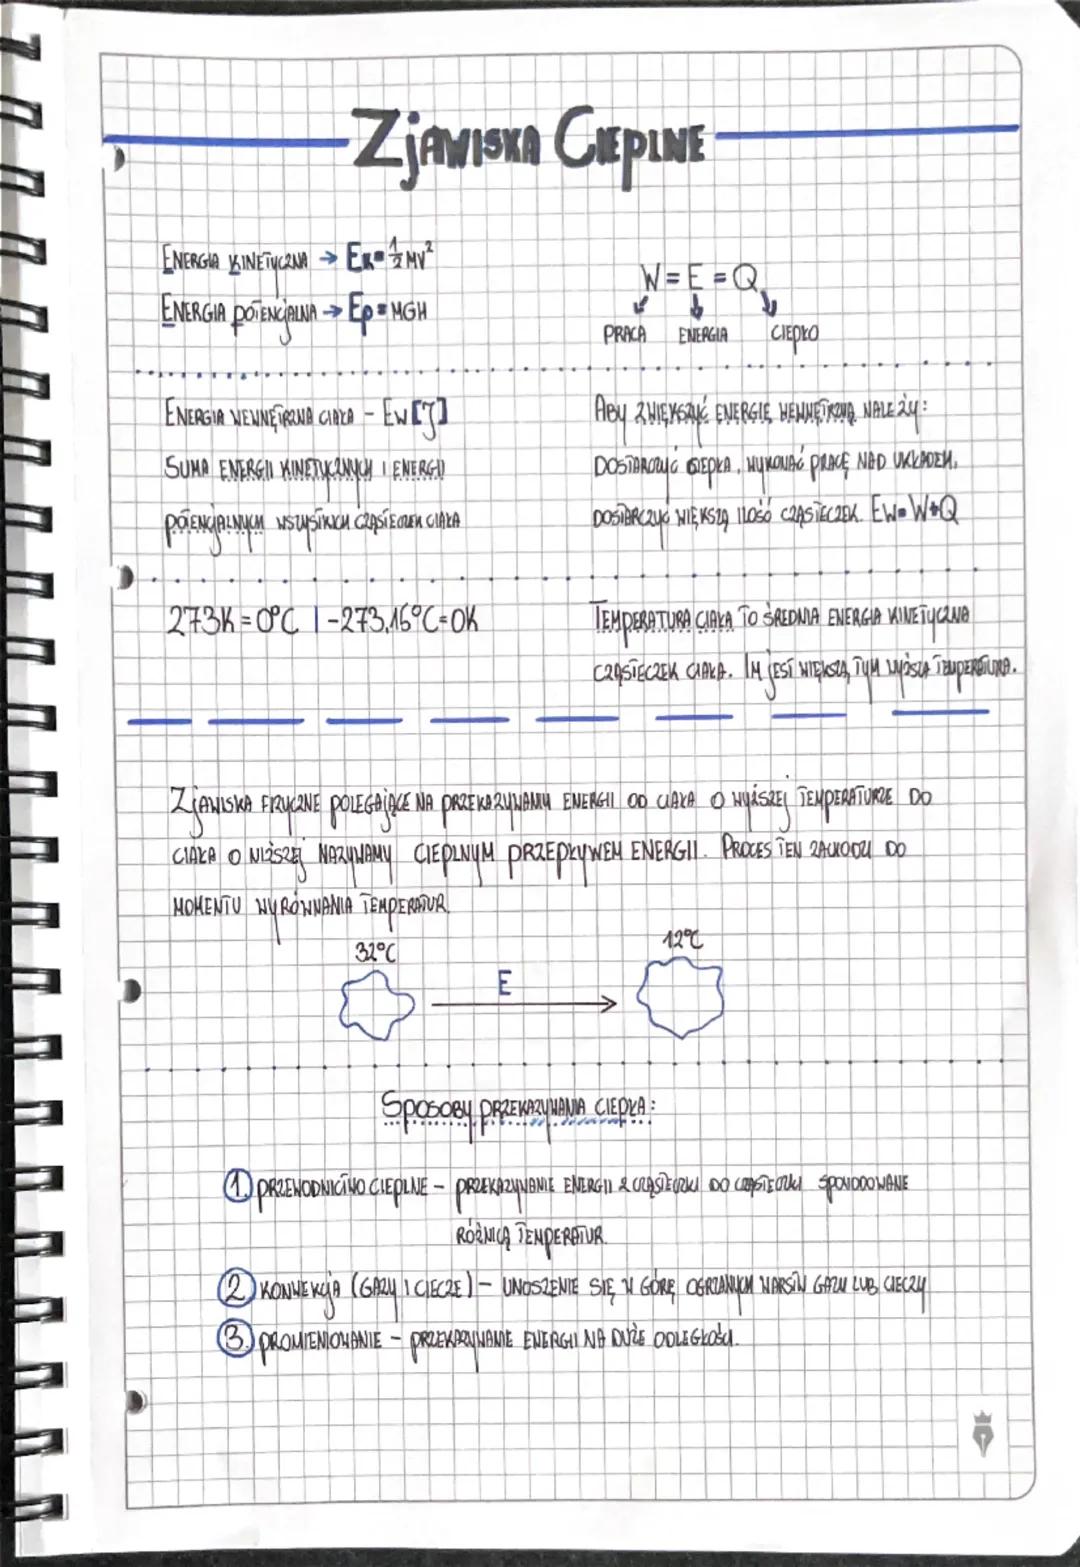 Zjawiska Cieplne
Energia kinetyczna → Ek=½mv²
Energia potencjalna → Ep=mgh
W=E=Q
praca energia ciepło
Energia wewnętrzna ciała – Ew[J]
Suma energii kinetycznych i energii
potencjalnych wszystkich cząsteczek ciała
Aby zwiększyć energię wewnętrzną należy:
dostarczyć ciepła, wykonać pracę nad układem,
dostarczyć większą ilość cząsteczek. Ew=W+Q
273K=0°C | -273,15°C=0K
Temperatura ciała to średnia energia kinetyczna
cząsteczek ciała. Im jest większa, tym wyższa temperatura.
Zjawiska fizyczne polegające na przekazywaniu energii od ciała o wyższej temperaturze do
ciała o niższej nazywamy cieplnym przepływem energii. Proces ten zachodzi do
momentu wyrównania temperatur.
32°C 12°C
E
Sposoby przekazywania ciepła:
1. przewodnictwo cieplne – przekazywanie energii z cząsteczki do cząsteczki spowodowane
różnicą temperatur.
2. konwekcja (gazy i ciecze) – unoszenie się w górę ogrzanych warstw gazu lub cieczy
3. promieniowanie – przekazywanie energii na duże odległości.